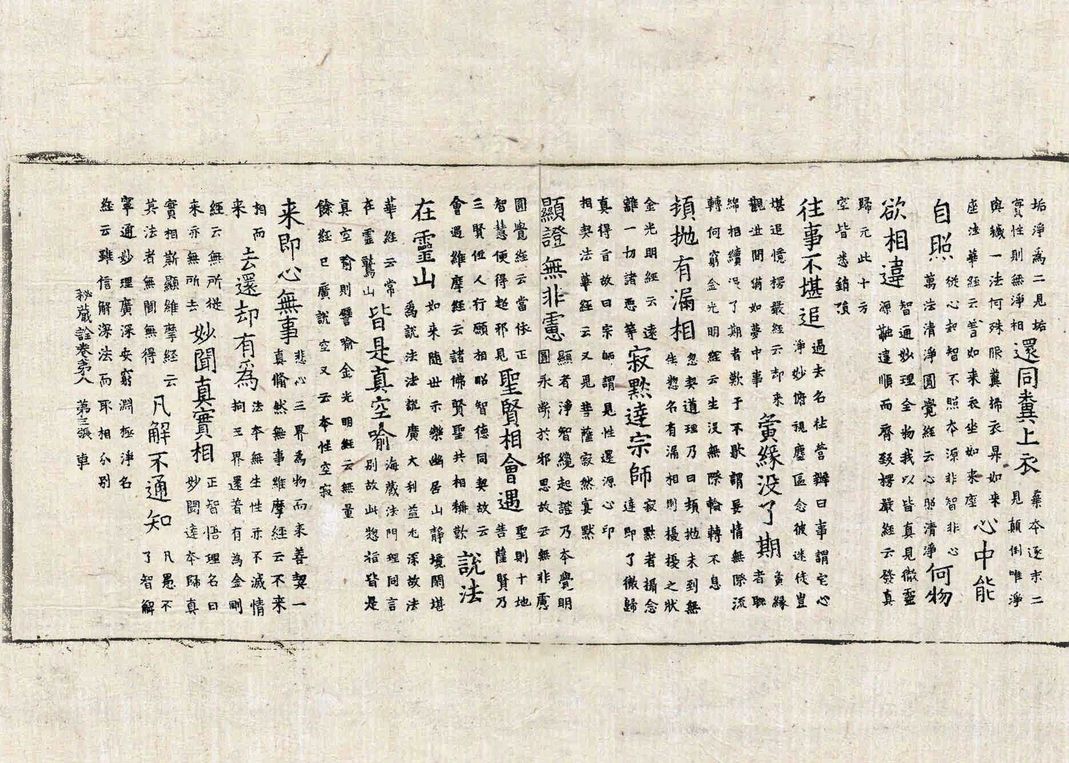 垢淨為二見垢實性則無淨相還同糞上衣棄本逐末二見顛倒唯淨
與穢一法何殊眼糞掃衣昇如來座法華經云著如來衣坐如來座心中能
自照從心起智不照本源非智非心萬法清淨圓覺經云心照清淨何物
欲相違智通妙理全物我以皆真見徹靈源融違順而齊致楞嚴經云發真
歸元此十方空皆悉銷殞
往事不堪追過去名枯蓍辦曰事謂宅心淨妙俯視塵區念彼迷徒豈
堪追憶楞嚴經云却來觀世間猶如夢中事夤緣没了期夤緣者聯
綿相續没了期者歎于不歇謂妄情無際流轉何窮金光明經云生没無際輪轉不息
頓抛有漏相忽契道理乃曰頓抛未到無生惣名有漏相則擾擾之狀
金光明經云遠離一切諸惡等寂默達宗師寂默者攝念達即了徹歸
真得旨故曰宗師謂見性還源心印相契法華經云又見菩薩寂然宴默
顯證無非慮顯者淨智纔起證乃本覺明圓永嘶於邪思故云無非慮
圓覺經云當依正智慧便得超邪見聖賢相會遇聖則十地菩薩賢乃
三賢位人行願相昭智德同契故云會遇維摩經云諸佛賢聖共相稱歎說法
在靈山如来隨世示樂幽居山靜境閑堪為説法法説廣大利益尤深故法
華經云常在靈鷲山皆是真空喻海藏法門理同言別故此惣指皆是
真空喻則譬喻金光明經云無量餘經已廣説空又云本性空寂
来即心無事悲心三界為物而来善契一真脩然無事維摩經云不来
相而来去還却有為法本無生性亦不滅情拘三界還著有為金剛
經云無所従来亦無所去妙聞真實相正智悟理名曰妙聞達本歸真
實相斯顯維摩經云其法者無聞無得凡解不通知凡愚不了智解
寧通妙理廣深安窮淵極淨名經云雖信解深法而取相分別
秘藏詮卷第八 第三張 車